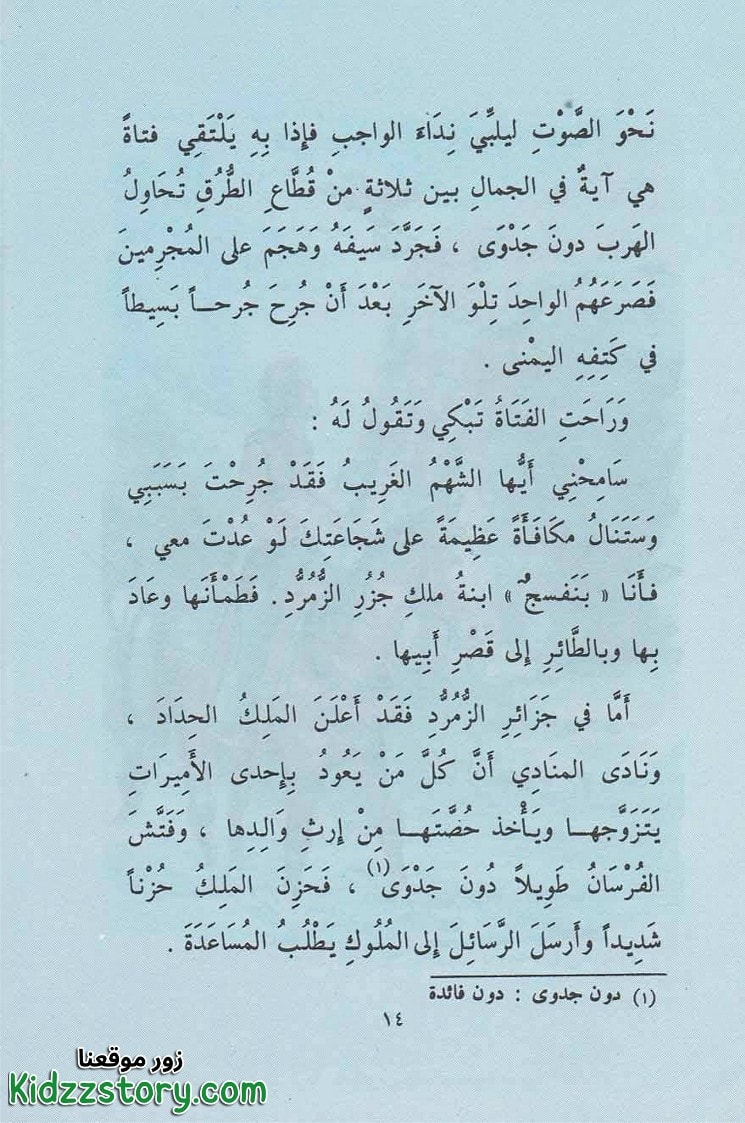 نَحْوَ الصَّوْتِ ليلبِّيَ نِدَاءَ الواجبِ فإِذا بِهِ يَلْتَقِي فتاةً
هي آيةٌ في الجمالِ بين ثلاثةٍ منْ قُطَّاعِ الطُّرُقِ تُحَاوِلُ
الهَربَ دونَ جَدْوَى ، فَجَرَّدَ سَيفَهُ وَهَجَمَ على المُجْرِمينَ
فَصَرَعَهُمُ الواحِدَ تِلْوَ الآخَرِ بَعْدَ أَنْ جُرِحَ جُرحــاً بَسِيطاً
في كَتِفِهِ اليمْنى .
وَرَاحَتِ الفَتَاةُ تَبْكِي وَتَقُولُ لَهُ :
سَامِحْنِي أَيُّها الشَّهْمُ الغَرِيبُ فَقَدْ جُرِحْتَ بَسَبَبِي
وَسَتَنَالُ مكَافَأَةً عَظِيمَةً على شَجَاعَتِكَ لَوْ عُدْتَ معي ،
فأَنَا « بَنَفسجٌ » ابنةُ ملكِ جُزُرِ الزُّمُرُّدِ . فَطَمْأَنَها وعَادَ
بِها وبالطَّائِرِ إِلى قَصْرِ أَبِيها .
أَمَّا في جَزَائِرِ الزُّمُرُّدِ فَقَدْ أَعْلَنَ المَلِكُ الحِدَادَ ،
وَنَادَى المنَادِي أَنَّ كُلَّ مَنْ يَعُودُ بِإِحدى الأَمِيرَاتِ
يَتَزَوَّجهــا ويَأْخذ حُصَّتَهــا مِنْ إِرثِ وَالِدِها ، وَفَتَّشَ
الفُرْسَانُ طَوِيلاً دُونَ جَدْوَى(١) ، فَحَزِنَ المَلِكُ حُزْناً
شَدِيداً وأَرسَلَ الرَّسَائِلَ إِلى المُلُوكِ يَطْلُبُ المُسَاعَدَةَ .
(١) دون جدوى : دون فائدة
١٤
زور موقعنا
Kidzzstory.com